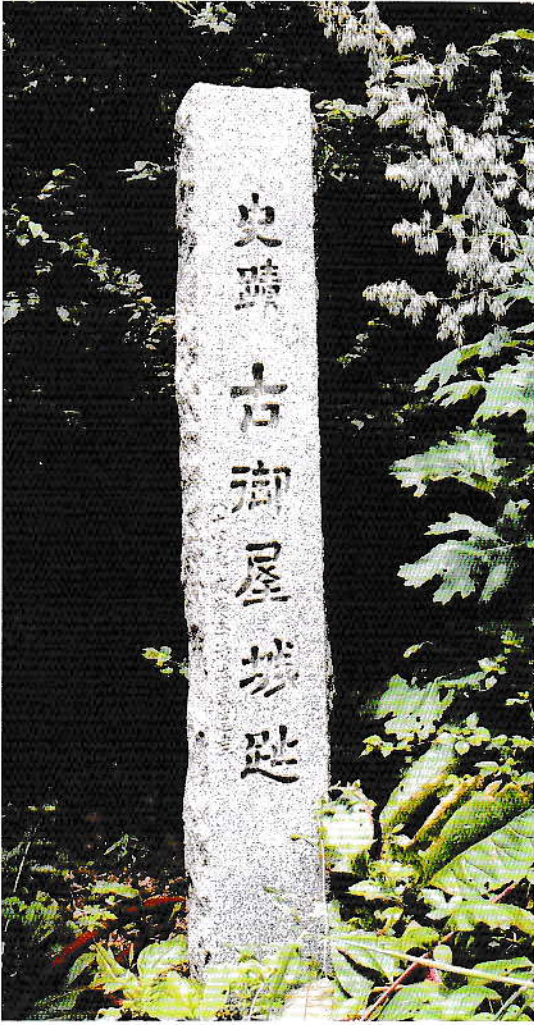 史蹟 古御屋城趾